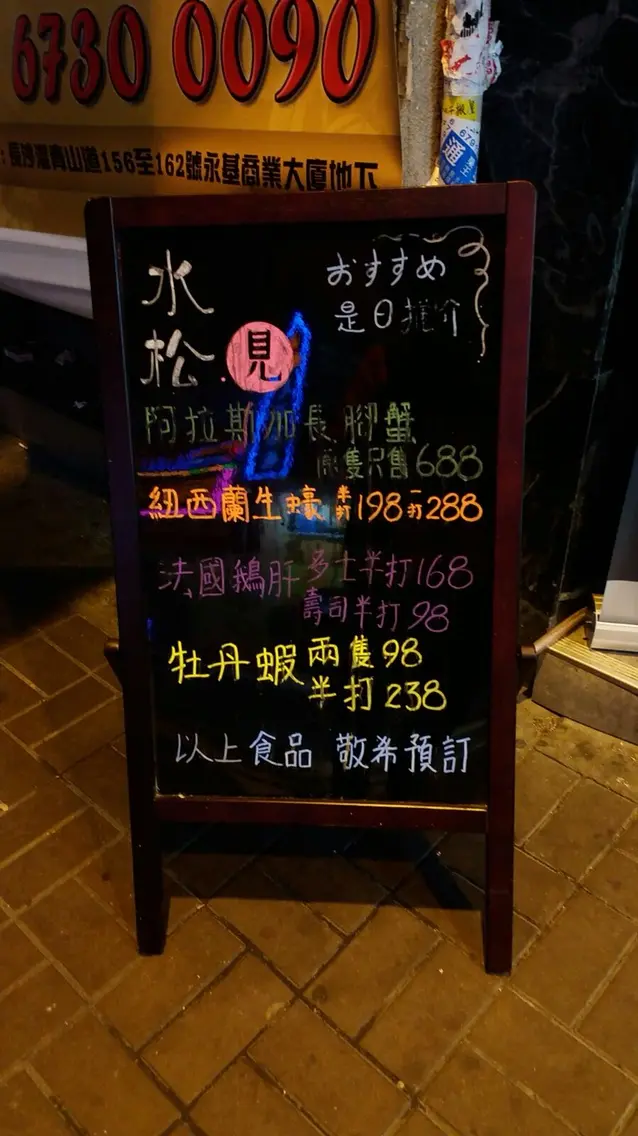 6730 0090
長沙灣青山道156至162號永基商業大廈地下
水松.見
おすすめ
是日推介
阿拉斯加長腳蟹
兩隻只售688
紐西蘭生蠔 半打198 一打288
法國鵝肝 多士半打168
壽司半打98
牡丹蝦 兩隻98
半打238
以上食品 敬希預訂